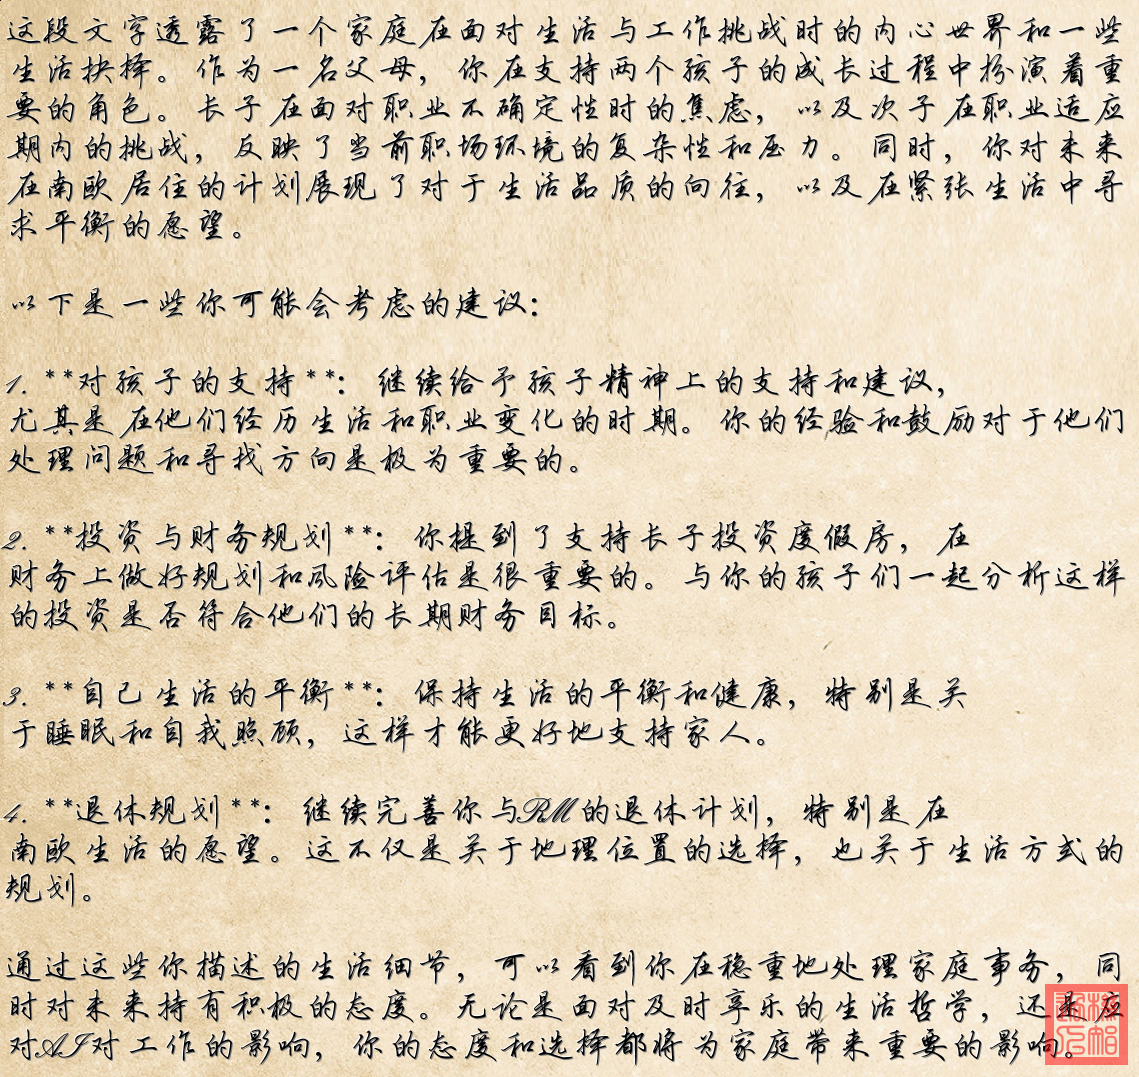 这段文字透露了一个家庭在面对生活与工作挑战时的内心世界和一些
生活抉择。作为一名父母，你在支持两个孩子的成长过程中扮演着重
要的角色。长子在面对职业不确定性时的焦虑，以及次子在职业适应
期内的挑战，反映了当前职场环境的复杂性和压力。同时，你对未来
在南欧居住的计划展现了对于生活品质的向往，以及在紧张生活中寻
求平衡的愿望。
以下是一些你可能会考虑的建议：
1. **对孩子的支持**：继续给予孩子精神上的支持和建议，
尤其是在他们经历生活和职业变化的时期。你的经验和鼓励对于他们
处理问题和寻找方向是极为重要的。
2. **投资与财务规划**：你提到了支持长子投资度假房，在
财务上做好规划和风险评估是很重要的。与你的孩子们一起分析这样
的投资是否符合他们的长期财务目标。
3. **自己生活的平衡**：保持生活的平衡和健康，特别是关
于睡眠和自我照顾，这样才能更好地支持家人。
4. **退休规划**：继续完善你与RM的退休计划，特别是在
南欧生活的愿望。这不仅是关于地理位置的选择，也关于生活方式的
规划。
通过这些你描述的生活细节，可以看到你在稳重地处理家庭事务，同
时对未来持有积极的态度。无论是面对及时享乐的生活哲学，还是应
对AI对工作的影响，你的态度和选择都将为家庭带来重要的影响。